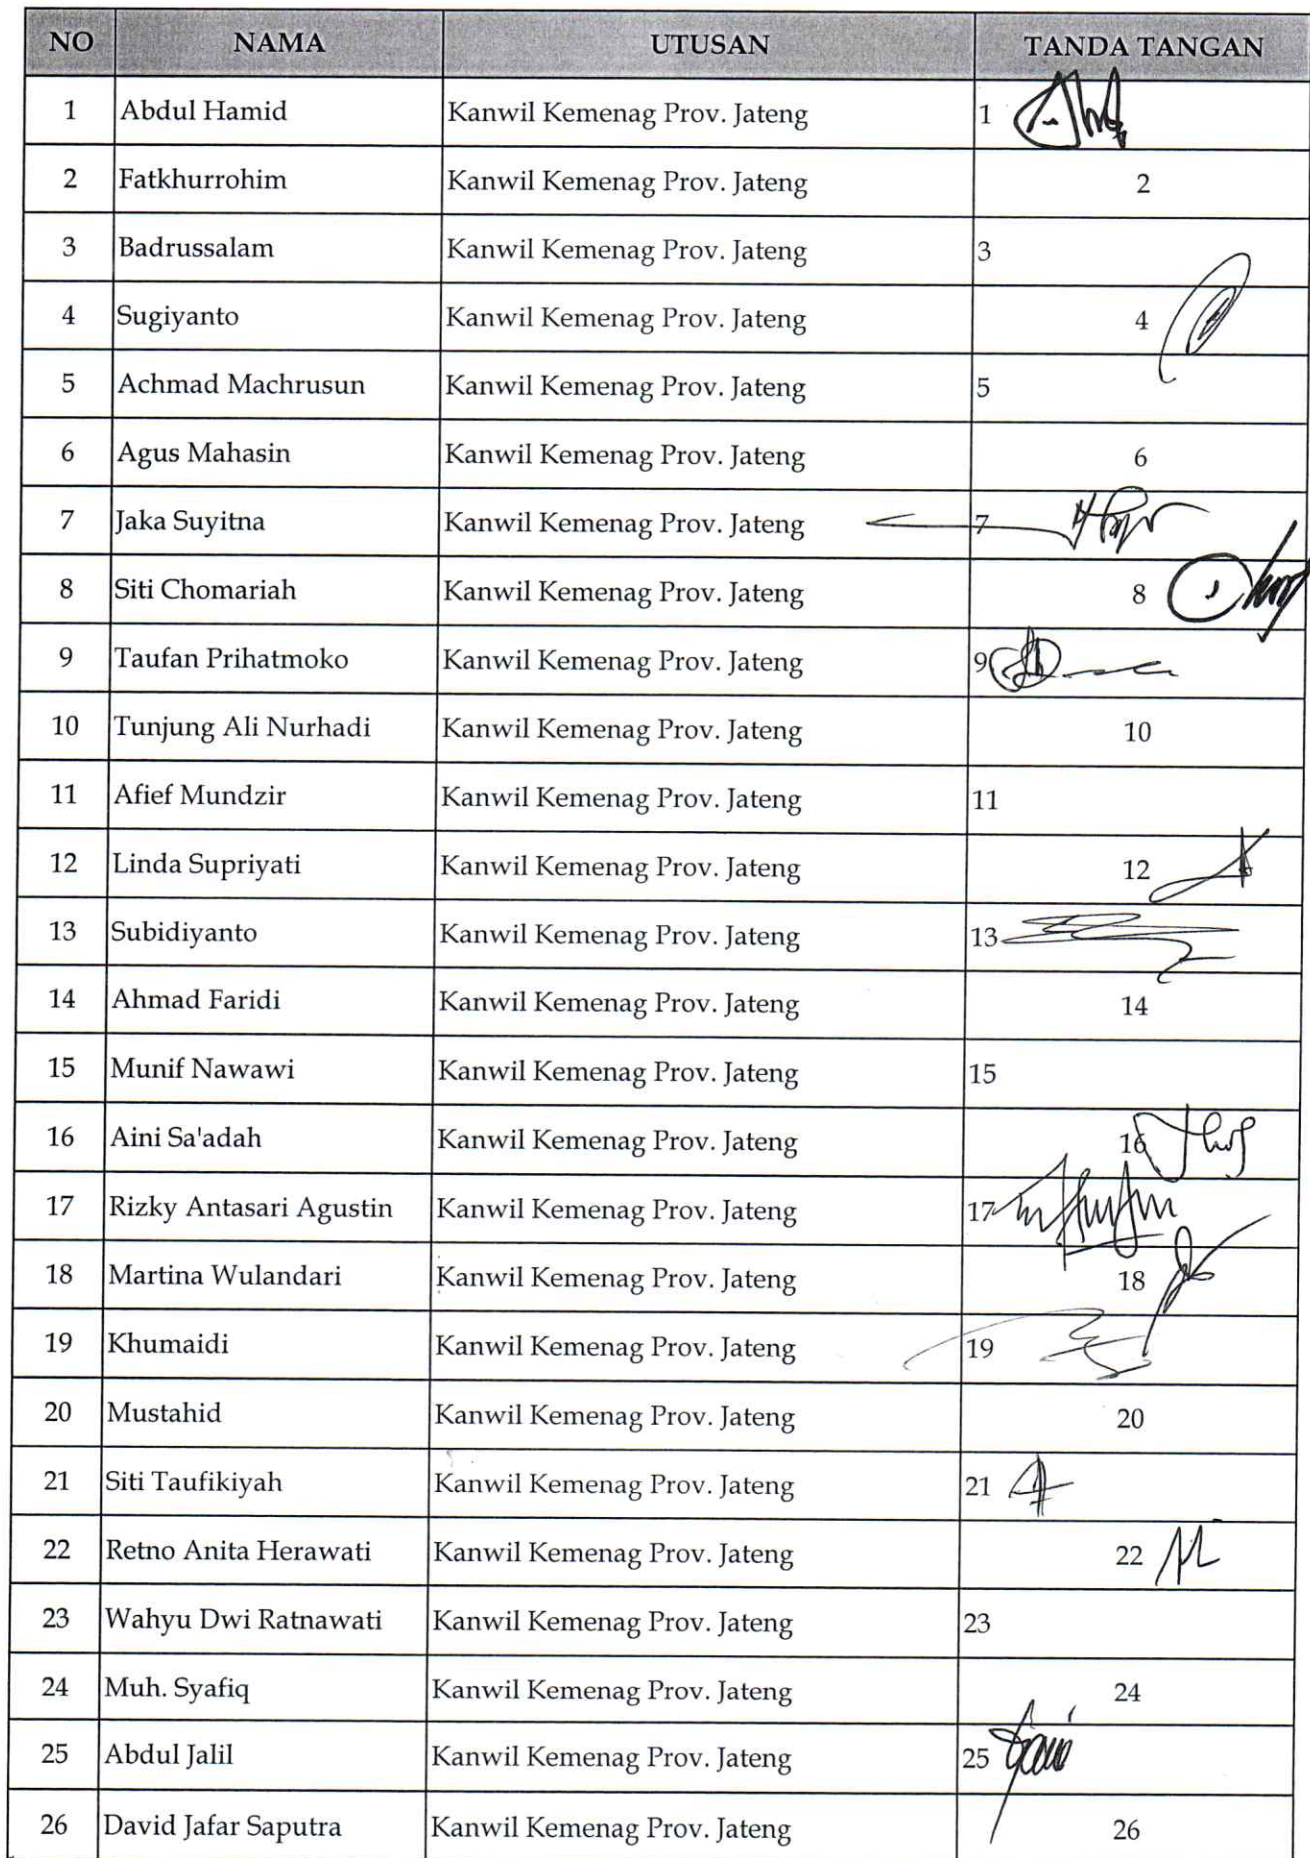 NO NAMA UTUSAN TANDA TANGAN
1 Abdul Hamid Kanwil Kemenag Prov. Jateng 1
2 Fatkhurrohim Kanwil Kemenag Prov. Jateng 2
3 Badrussalam Kanwil Kemenag Prov. Jateng 3
4 Sugiyanto Kanwil Kemenag Prov. Jateng 4
5 Achmad Machrusun Kanwil Kemenag Prov. Jateng 5
6 Agus Mahasin Kanwil Kemenag Prov. Jateng 6
7 Jaka Suyitna Kanwil Kemenag Prov. Jateng 7
8 Siti Chomariah Kanwil Kemenag Prov. Jateng 8
9 Taufan Prihatmoko Kanwil Kemenag Prov. Jateng 9
10 Tunjung Ali Nurhadi Kanwil Kemenag Prov. Jateng 10
11 Afief Mundzir Kanwil Kemenag Prov. Jateng 11
12 Linda Supriyati Kanwil Kemenag Prov. Jateng 12
13 Subidiyanto Kanwil Kemenag Prov. Jateng 13
14 Ahmad Faridi Kanwil Kemenag Prov. Jateng 14
15 Munif Nawawi Kanwil Kemenag Prov. Jateng 15
16 Aini Sa'adah Kanwil Kemenag Prov. Jateng 16
17 Rizky Antasari Agustin Kanwil Kemenag Prov. Jateng 17
18 Martina Wulandari Kanwil Kemenag Prov. Jateng 18
19 Khumaidi Kanwil Kemenag Prov. Jateng 19
20 Mustahid Kanwil Kemenag Prov. Jateng 20
21 Siti Taufikiyah Kanwil Kemenag Prov. Jateng 21
22 Retno Anita Herawati Kanwil Kemenag Prov. Jateng 22
23 Wahyu Dwi Ratnawati Kanwil Kemenag Prov. Jateng 23
24 Muh. Syafiq Kanwil Kemenag Prov. Jateng 24
25 Abdul Jalil Kanwil Kemenag Prov. Jateng 25
26 David Jafar Saputra Kanwil Kemenag Prov. Jateng 26